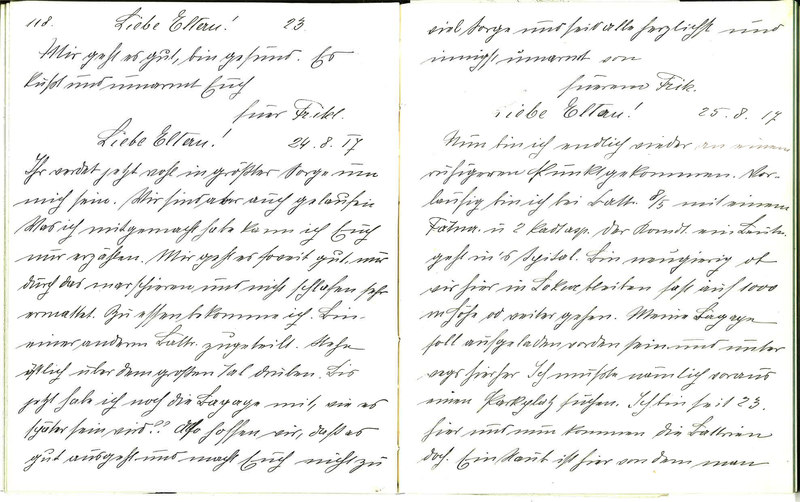 118. Liebe Eltern! 23.
Mir geht es gut, bin gesund. Es
küßt und umarmt Euch
Euer Fritzl.
Liebe Eltern! 24.8.17
Ihr werdet jetzt wohl in größter Sorge um
mich sein. Wir sind aber auch gelaufen
Was ich mitgemacht habe kann ich Euch
nur erzählen. Mir geht es soweit gut, nur
durch das marschieren und nicht schlafen sehr
ermattet. Zu essen bekomme ich. Bin
einer andern Battr. zugeteilt. Mehr
östlich über dem großen Tal drüben. Bis
jetzt habe ich noch die Bagage mit, wie es
später sein wird?? Also hoffen wir, daß es
gut ausgeht und macht Euch nicht zu
viel Sorge und seid alle herzlichst und
innigst umarmt von
Eurem Fritz.
Liebe Eltern! 25.8.17
Nun bin ich endlich wieder an einem
ruhigeren Punkt gekommen. Vor-
läufig bin ich bei Battr. 8/5 mit einem
u 2 Der Komdt. ein Leutn.
geht in's Spital. Bin neugierig ob
wir hier in bleiben fast auf 1000
m Höhe od weiter gehen. Meine Bagage
soll aufgeladen worden sein und unter
wegs hierher Ich mußte nämlich voraus
einen Parkplatz suchen. Ich bin seit 23.
hier und nun kommen die Battrien
doch. Ein Staub ist hier von dem man